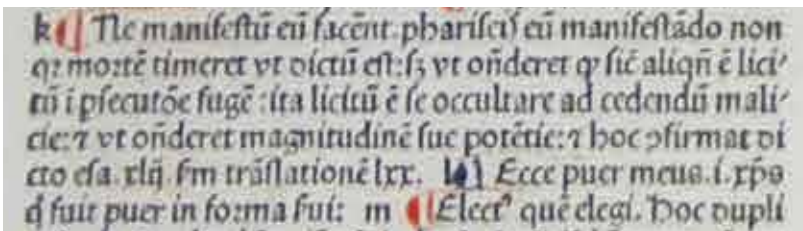 k ¶ Ne manifestū eū facēt. phariseis eū manifestādo non
qꝛ moꝛtē timeret vt dictū est: sꝫ vt oñderet ꝙ sic̄ aliqñ ē lici-
tū i ꝑsecutōe fugē: ita licitū ē se occultare ad cedendū mali-
cie: ⁊ vt oñderet magnitudinē sue potētie: ⁊ hoc ꝯfirmat di
cto esa. xlij. fm trāslationē lxx. l ¶ Ecce puer meus .i. xp̄s
q̄ fuit puer in foꝛma sui: m ¶ Elect⁹ quē elegi. Hoc dupli